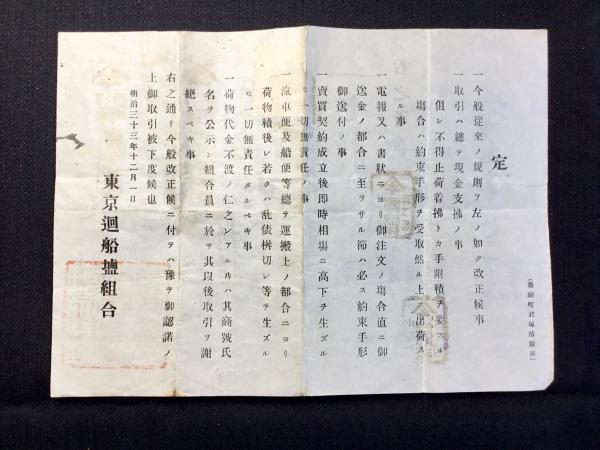 定
一今般從來ノ規則ヲ左ノ如ク改正候事
一取引ハ總テ現金支拂ノ事
但シ不得止荷着拂トカ手附積ヲ要スル
塲合ハ約束手形ヲ受取然ル上出荷ス
ル事
一電報又ハ書狀ニヨリ御注文ノ塲合直ニ御
送金ノ都合ニ至ラサル節ハ必ス約束手形
御送付ノ事
一賣買契約成立後即時相塲ニ高下ヲ生ズル
モ一切無責任ノ事
一滊車便及船便等總テ運搬上ノ都合ニヨリ
荷物積後レ若クハ乱俵桝切レ等ヲ生ズル
モ一切無責任タルベキ事
一荷物代金不渡ノ仁之レアル片ハ其商號氏
名ヲ公示シ組合員ニ於テ其以後取引ヲ謝
絶スベキ事
右之通リ今般改正候ニ付テハ豫テ御認諾ノ
上御取引被下度候也
明治三十三年十二月一日
東京迴船塩組合